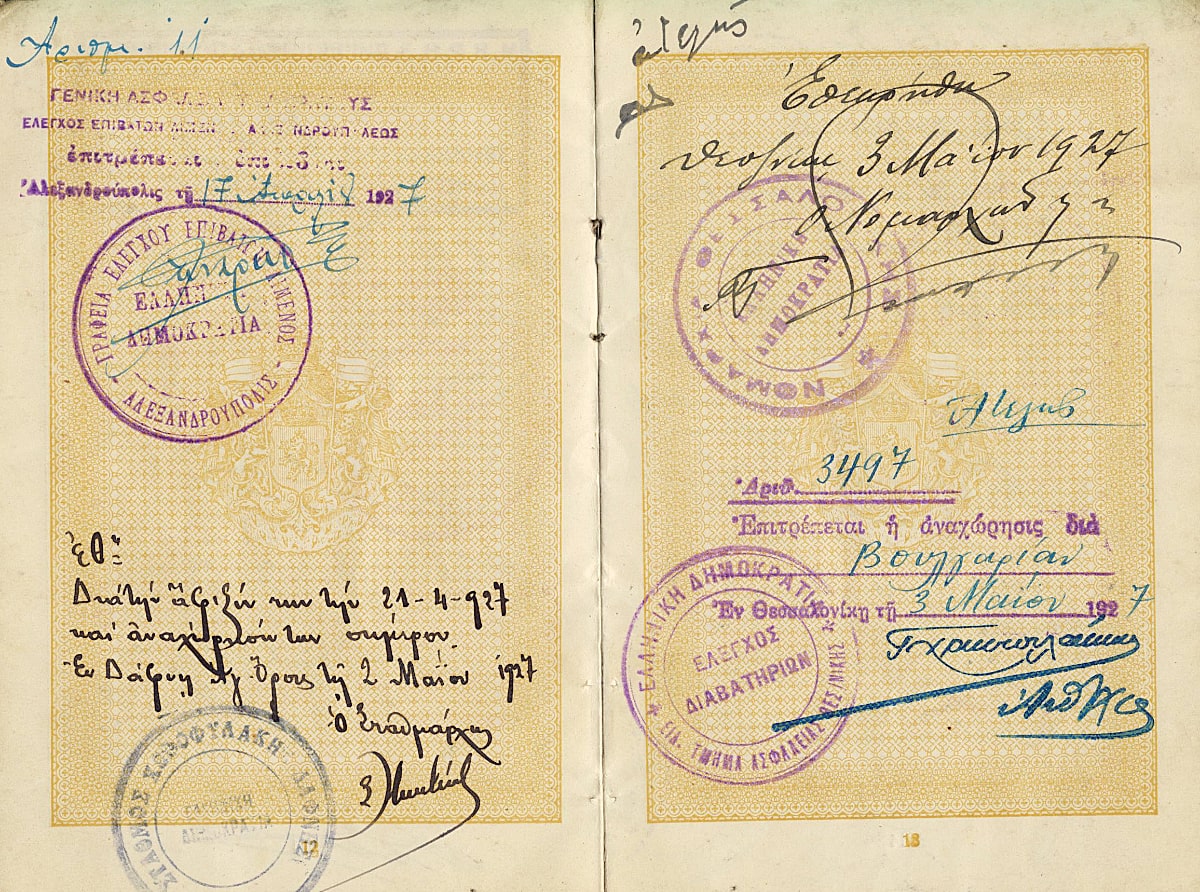 Αριθμ. 11
ΓΕΝΙΚΗ ΑΣΦΑΛΕΙΑ
ΕΛΕΓΧΟΣ ΕΠΙΒΑΤΩΝ ΛΙΜΕΝΟΣ ΑΛΕΞΑΝΔΡΟΥΠΟΛΕΩΣ
ἐπιτρέπεται
Ἀλεξανδρούπολις τῇ 17 Ἀπριλίου 1927
ΓΡΑΦΕΙΑ ΕΛΕΓΧΟΥ ΕΠΙΒΑΤΩΝ ΛΙΜΕΝΟΣ
ΕΛΛΗΝΙΚΗ
ΔΗΜΟΚΡΑΤΙΑ
ΑΛΕΞΑΝΔΡΟΥΠΟΛΙΣ
Ἐθ.
Διὰ τὴν ἄφιξίν του τὴν 21-4-927
καὶ ἀναχώρησίν του σήμερον.
Ἐν Δάφνῃ Ἁγ. Ὄρους τῇ 2 Μαΐου 1927
Ὁ Σταθμάρχης
ΣΤΑΘΜΟΣ ΧΩΡΟΦΥΛΑΚΗΣ ΔΑΦΝΗΣ
ΕΛΛΗΝΙΚΗ
ΔΗΜΟΚΡΑΤΙΑ
12
ἀτελῶς
Ἐθεωρήθη
Θεσ/νίκη 3 Μαΐου 1927
Ὁ Νομάρχης
ΝΟΜΑΡΧΙΑ ΘΕΣΣΑΛΟΝΙΚΗΣ
ΕΛΛΗΝΙΚΗ
ΔΗΜΟΚΡΑΤΙΑ
Ἀτελῶς
Ἀριθ. 3497
Ἐπιτρέπεται ἡ ἀναχώρησις διὰ
Βουλγαρίαν
Ἐν Θεσσαλονίκῃ τῇ 3 Μαΐου 1927
ΕΛΛΗΝΙΚΗ ΔΗΜΟΚΡΑΤΙΑ
ΕΛΕΓΧΟΣ
ΔΙΑΒΑΤΗΡΙΩΝ
ΕΙΔ. ΤΜΗΜΑ ΑΣΦΑΛΕΙΑΣ ΘΕΣ/ΝΙΚΗΣ
13